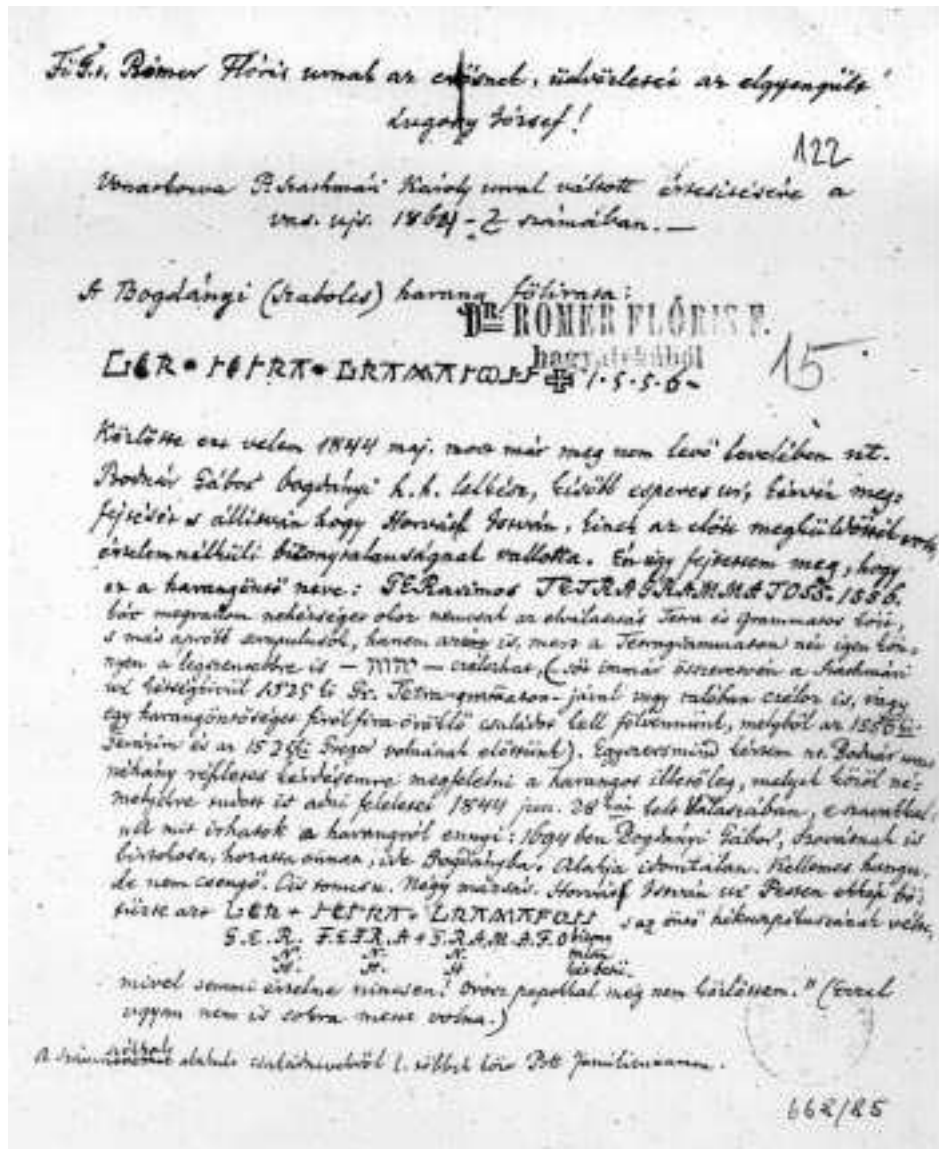 Fő T. Rómer Flóris urnak az erősnek, üdvözletét az elgyengült
Lugossy József!
122
Vonatkozva P. Szathmári Károly urral váltott értesítésére a
vas. ujs. 1864-2 számában. —
A Bogdányi (Szabolcs) harang fölirata:
DR. RÓMER FLÓRIS F.
hagyatékából
15
GER • TETRA • GRAMATOSS ✠ 1·5·5·6-
Közlötte ezt velem 1844 maj. most már meg nem levő levelében nt.
Bodnár Gábor bogdányi h.h. lelkész, később esperes úr, kérvén meg-
fejtését s állítván hogy Horvát István, kinek az előtt megküldötték volt,
értelemnélküli bizonytalanságnak vallotta. Én úgy fejtettem meg, hogy
ez a harangöntő neve: GERasimos TETRAGRAMMATOSS. 1556.
bár megvallom nehézséget okoz nemcsak az elválasztás Tetra és Grammatos közt,
s más apróbb scrupulusok, hanem az is, mert a Tetragrammaton név igen kön-
nyen a legszentebbre is — יהוה — czélozhat,
úr kétségkívül 1525 ki Gr. Tetragramaton-jával vagy valóban czéloz is, vagy
egy harangöntőséget firól fira öröklő családot kell fölvennünk, melyből az 1556ki
és az 1525ki Gregor volnának előttünk). Egyszersmind kértem nt. Bodnár urat
néhány kérdésemre megfelelni a harangot illetőleg, melyek közöl né-
melyikre tudott is adni feleletet 1844 jun. 28 kai kelt válaszában, e szavakkal:
mit írhatok a harangról ennyi: ben Bogdányi Gábor, is
birtokosa, hozatta onnan, ide Bogdányba. Alakja idomtalan. Kellemes hangu,
de nem csengő. Cis tonusu. Négy mázsás. Horvát István úr Pesten ekkép bö-
tűzte azt GER + TETRA + GRAMATOSS s az öntő vélte,
G.E.R. T.E.T.R.A + G.R.A.M.A.T.O
N. N. N.
H. H. H.
mivel semmi értelme nincsen! Orosz papokkal még nem közlöttem." (Ezzel
ugyan nem is sokra ment volna.)
alakult családnevekről l. többek közt Pott Familiennamen.
662/85